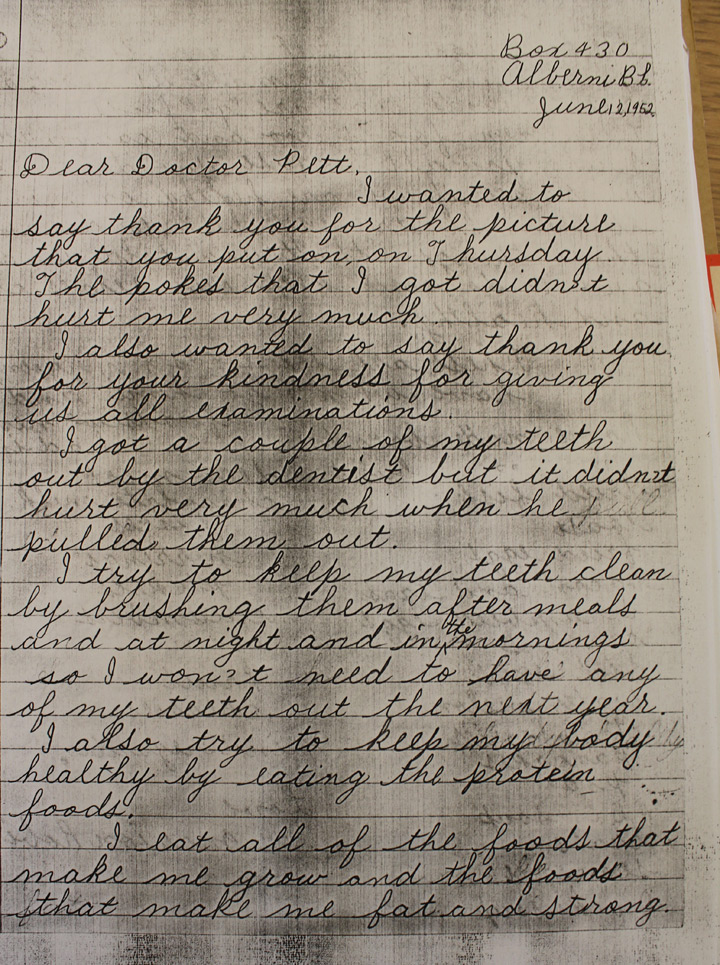 Box 430
Alberni B.C.
June 12, 1952
Dear Doctor Pett,
I wanted to
say thank you for the picture
that you put on, on Thursday.
The pokes that I got didn't
hurt me very much.
I also wanted to say thank you
for your kindness for giving
us all examinations.
I got a couple of my teeth
out by the dentist but it didn't
hurt very much when he
pulled them out.
I try to keep my teeth clean
by brushing them after meals
and at night and in the mornings
so I won't need to have any
of my teeth out the next year.
I also try to keep my body
healthy by eating the protein
foods.
I eat all of the foods that
make me grow and the foods
that make me fat and strong.